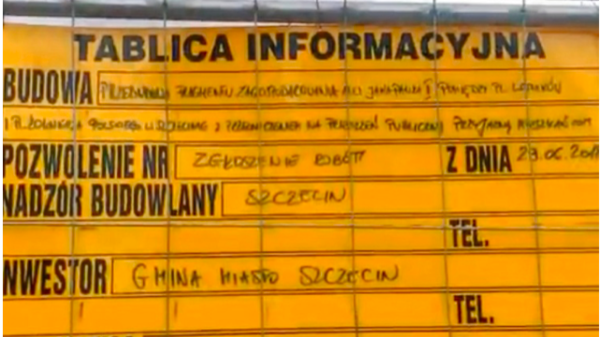 TABLICA INFORMACYJNA
BUDOWA PRZEBUDOWA FRAGMENTU ZAGOSPODAROWANIA ALEI JANA PAWŁA II POMIĘDZY PL. LOTNIKÓW
I PL. ŻOŁNIERZA POLSKIEGO W SZCZECINIE Z PRZEZNACZENIEM NA PRZESTRZEŃ PUBLICZNĄ PRZYJAZNĄ MIESZKAŃCOM
POZWOLENIE NR ZGŁOSZENIE ROBÓT Z DNIA 29.06.201
NADZÓR BUDOWLANY SZCZECIN
TEL.
NWESTOR GMINA MIASTO SZCZECIN
TEL.